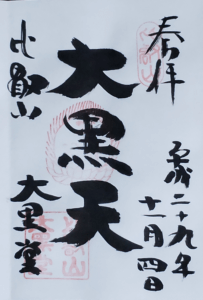 奉拝
平成二十九年
十一月四日
大黒天
比叡山
大黒堂